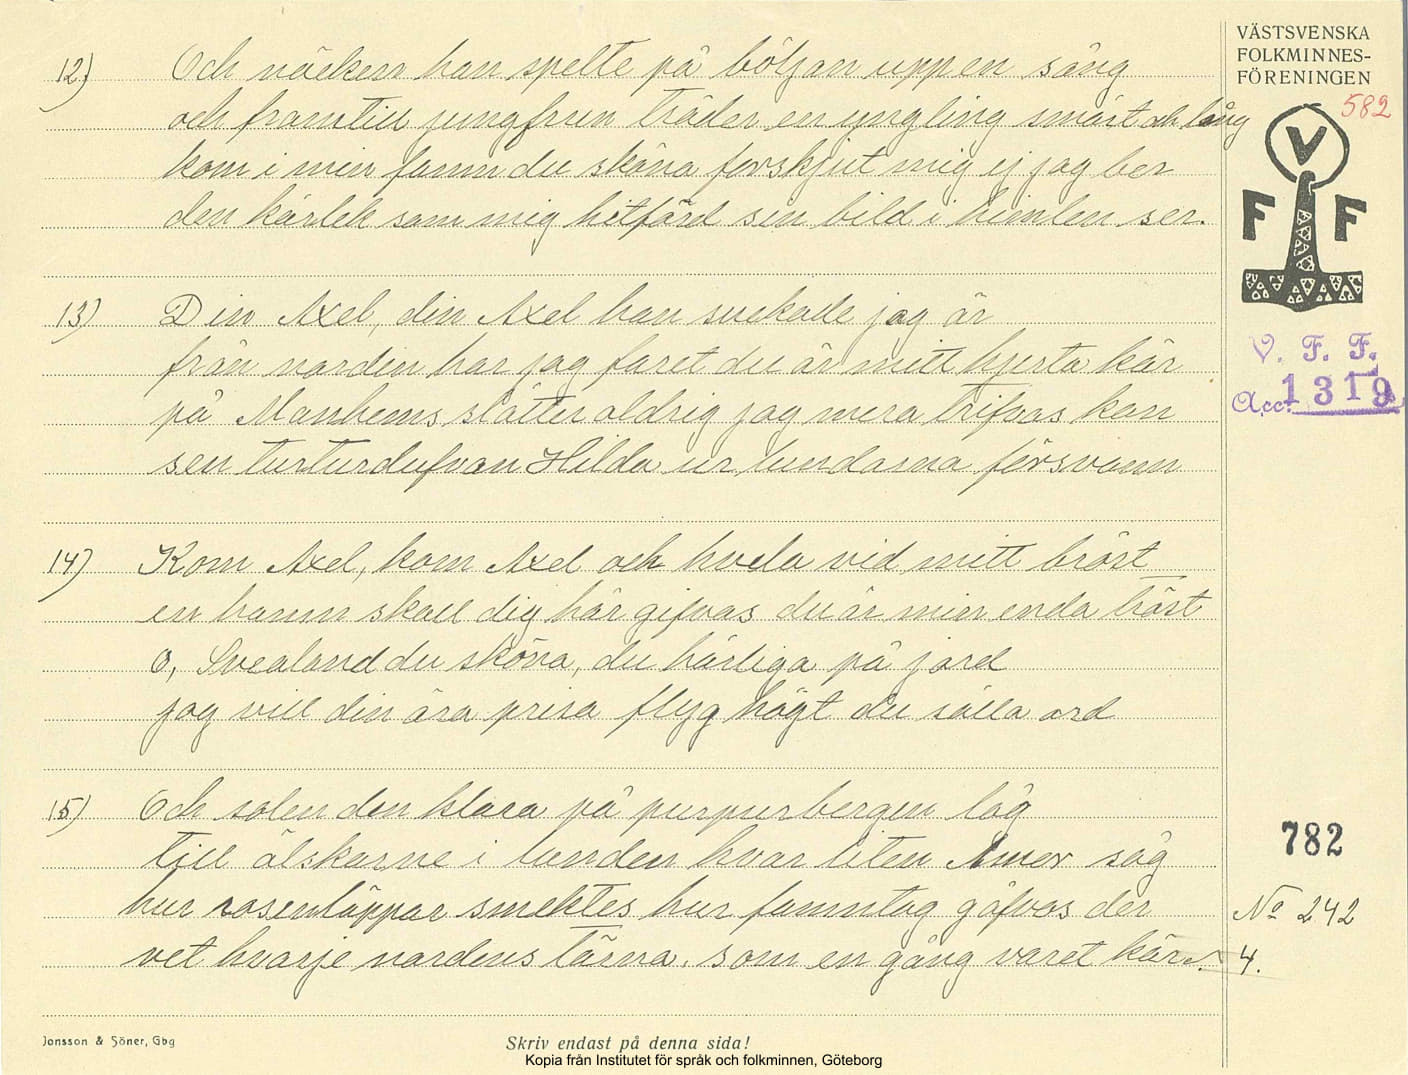 VÄSTSVENSKA
FOLKMINNES-
FÖRENINGEN
582
V
F F
V. F. F.
Acc. 1319
12) Och näcken han spelte på böljan upp en sång
och framtill jungfrun träder en yngling smärt och lång
kom i min famn du sköna förskjut mig ej jag ber
den kärlek som mig hitförd sin bild i himlen ser.
13) Din Axel, din Axel han suckade jag är
från norden har jag faret du är mitt hjerta kär
på Manhems slätter aldrig jag mera trifvas kan
sen turturdufvan Hilda ur lundarna försvann
14) Kom Axel, kom Axel och hvila vid mitt bröst
en hamn skall dig här gifvas du är min enda tröst
O, Svealand du sköna, du härliga på jord
jag vill din ära prisa flyg högt du sälla ord
15) Och solen den klara på purpurbergen låg
till älskarne i lunden kvar liten Amor såg
hur rosenläppar smektes hur famntag gåfvos der
vet hvarje nordens tärna, som en gång varet kär.
782
No 242
4.
Jonsson & Söner, Gbg
Skriv endast på denna sida!
Kopia från Institutet för språk och folkminnen, Göteborg